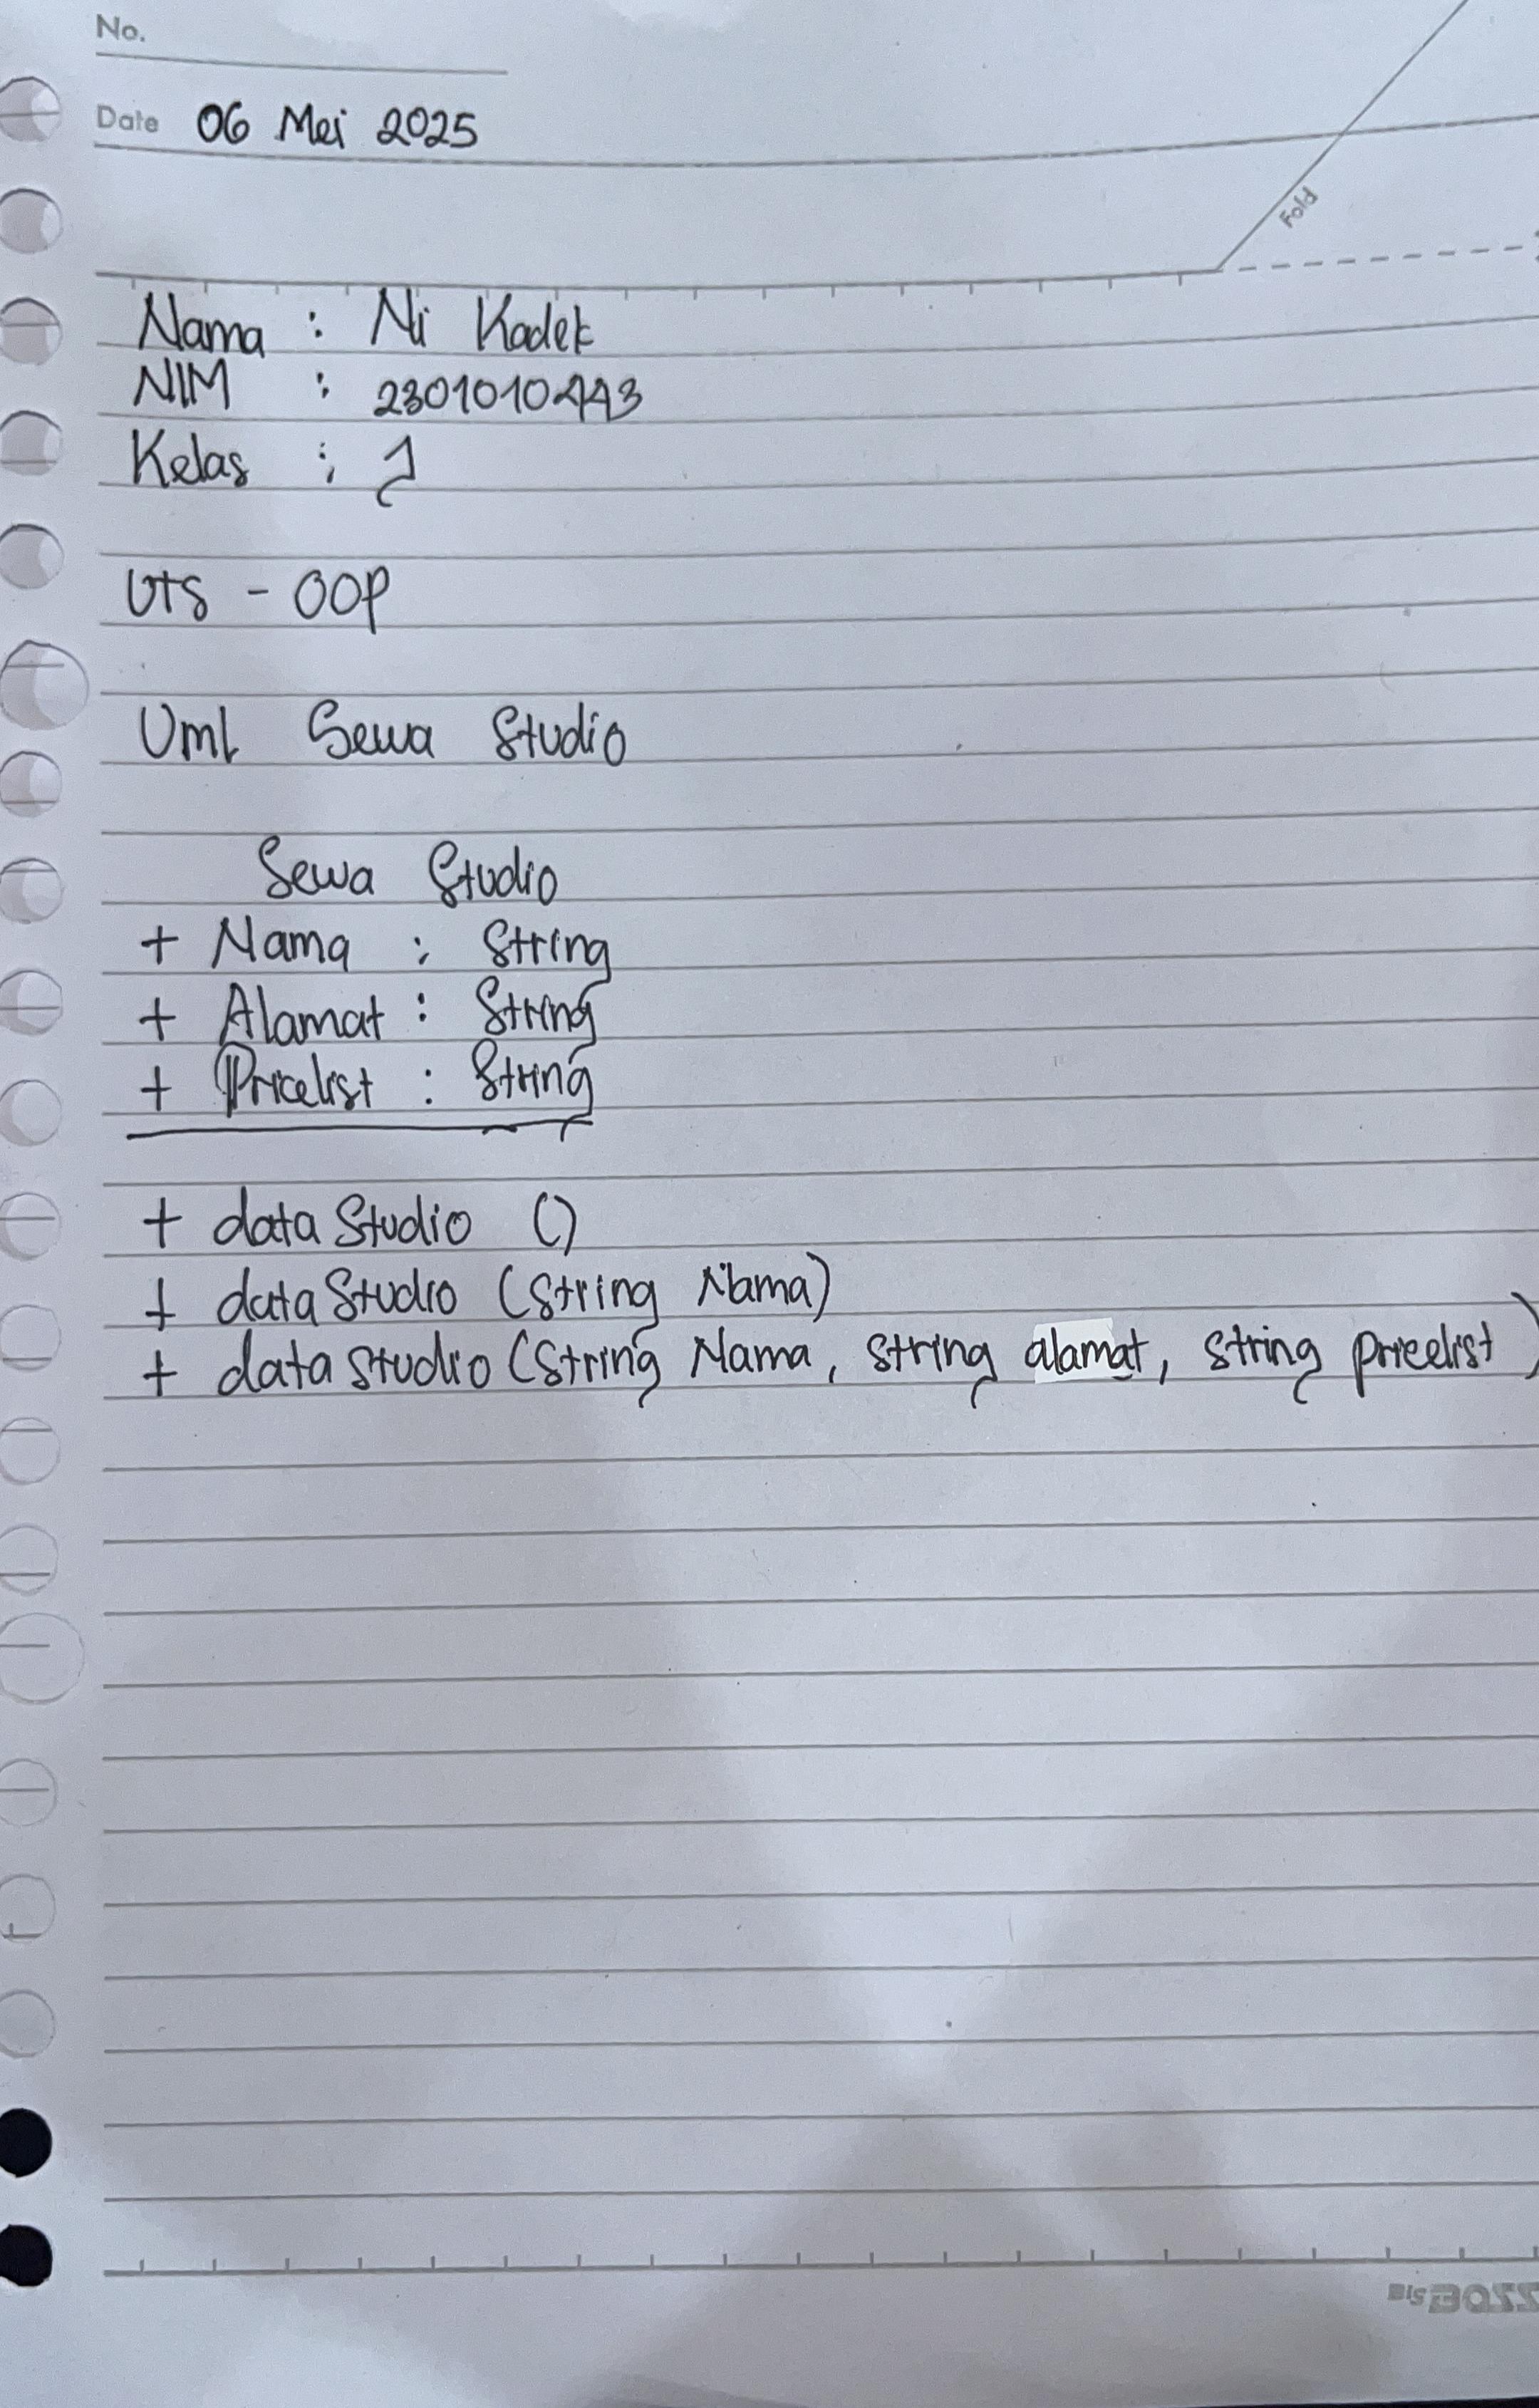 No.
Date 06 Mei 2025
Fold
Nama : Ni Kadek
NIM : 2301010443
Kelas : J
UTS - OOP
Uml Sewa Studio
Sewa Studio
+ Nama : String
+ Alamat : String
+ Pricelist : String
+ data Studio ()
+ data Studio (String Nama)
+ data studio (String Nama, string alamat, string pricelist)